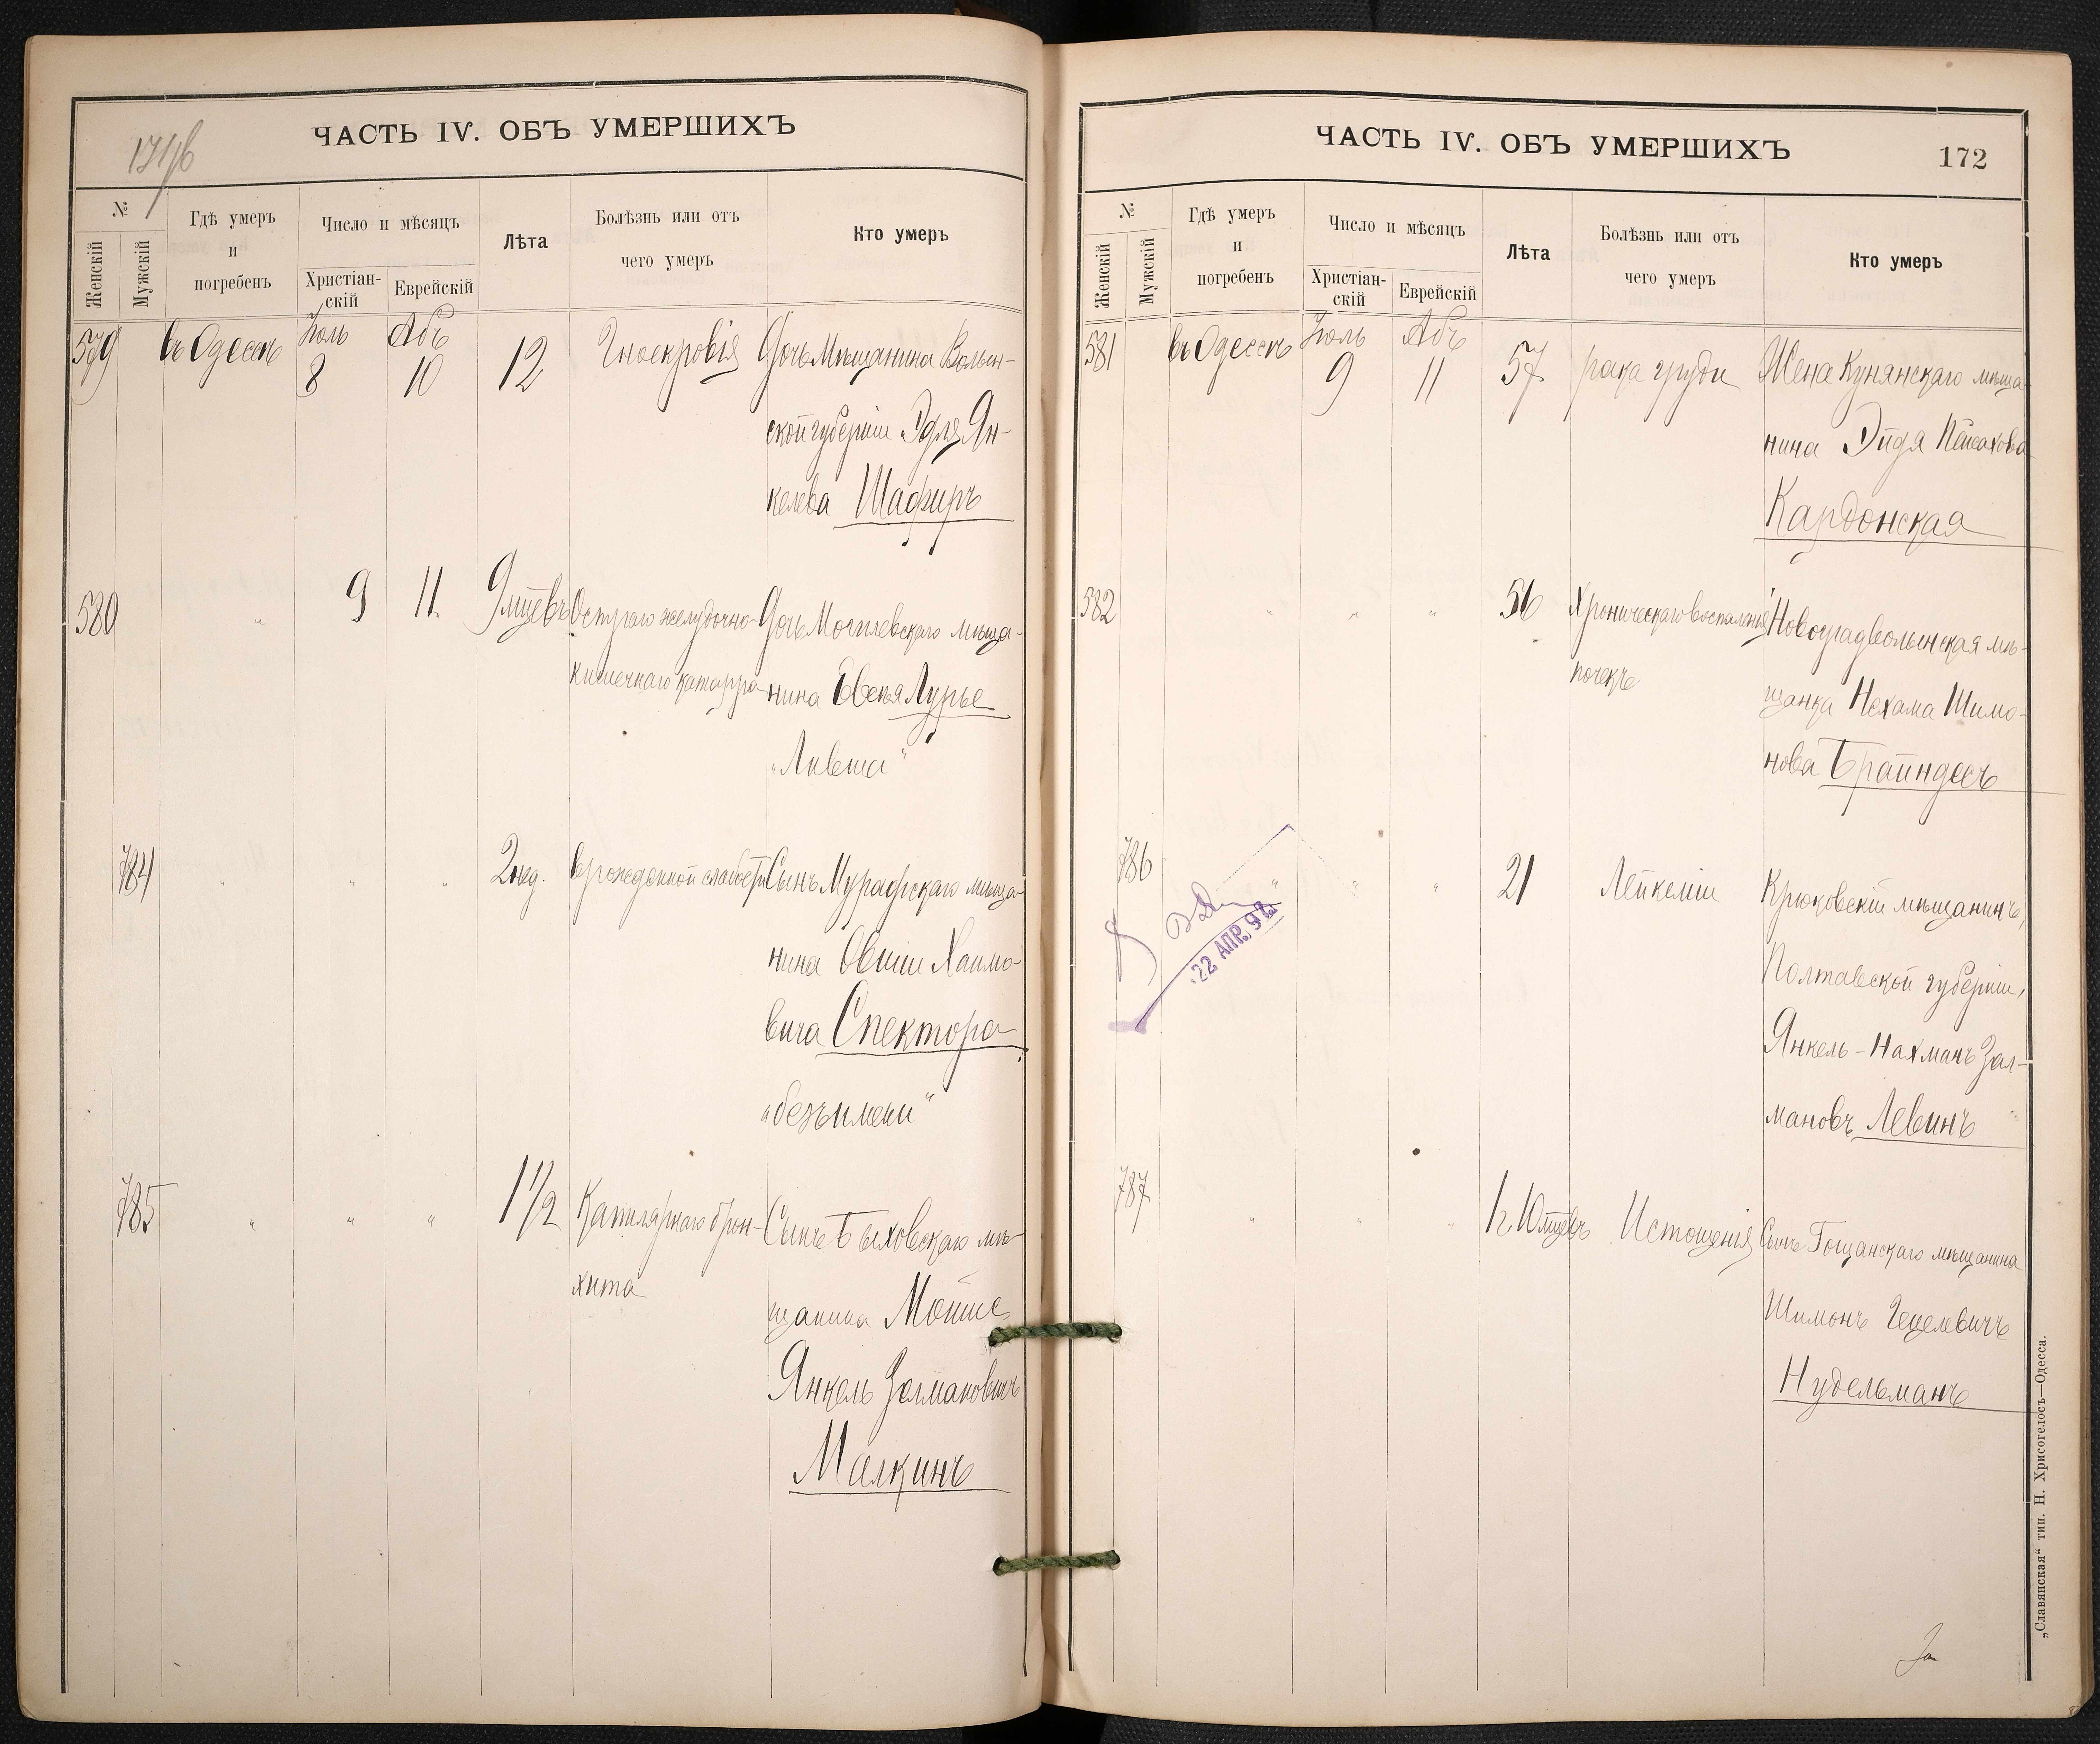 171 об
ЧАСТЬ IV. ОБЪ УМЕРШИХЪ
№
Женскій
Мужскій
Гдѣ умеръ
и
погребенъ
Число и мѣсяцъ
Христіан-
скій
Еврейскій
Лѣта
Болѣзнь или отъ
чего умеръ
Кто умеръ
579 въ Одессѣ Іюль 8 Абъ 10 12 Гноекровія Дочь Мѣщанина Волын-
ской губерніи Эдля Ян-
келева Шафиръ
580 " 9 11. 9 мцевъ Остраго желудочно- Дочь Могилевскаго мѣща-
кишечнаго катарра нина Евселя Лурье
"Ливша"
784 " " " 2 нед. врожденной слабости Сынъ Мурафскаго мѣща-
нина Овшіи Хаимо-
вича Спектора
"безъ имени"
785 " " " 1 1/2 Капилярнаго брон- Сынъ Быховскаго мѣ-
хита щанина Мойше
Янкель Залмановичъ
Малкинъ
ЧАСТЬ IV. ОБЪ УМЕРШИХЪ
172
№
Женскій
Мужскій
Гдѣ умеръ
и
погребенъ
Число и мѣсяцъ
Христіан-
скій
Еврейскій
Лѣта
Болѣзнь или отъ
чего умеръ
Кто умеръ
581 въ Одессѣ Іюль 9 Абъ 11 57 рака груди Жена Купянскаго мѣща-
нина Эйдя Пейсахова
Кардонская
582 " " " 56 Хроническаго воспаленія Новоградволынская мѣ-
почекъ щанка Нехама Шимо-
нова Брайндесъ
786 " " " 21 Лейкеміи Крюковскій мѣщанинъ,
Полтавской губерніи,
Янкель-Нахманъ Зал-
мановъ Левинъ
22 АПР. 92
787 " " " 1 г. 10 мцевъ Истощенія Сынъ Гощанскаго мѣщанина
Шимонъ Гецелевичъ
Нудельманъ
„Славянская“ тип. Н. Хрисогелосъ—Одесса.